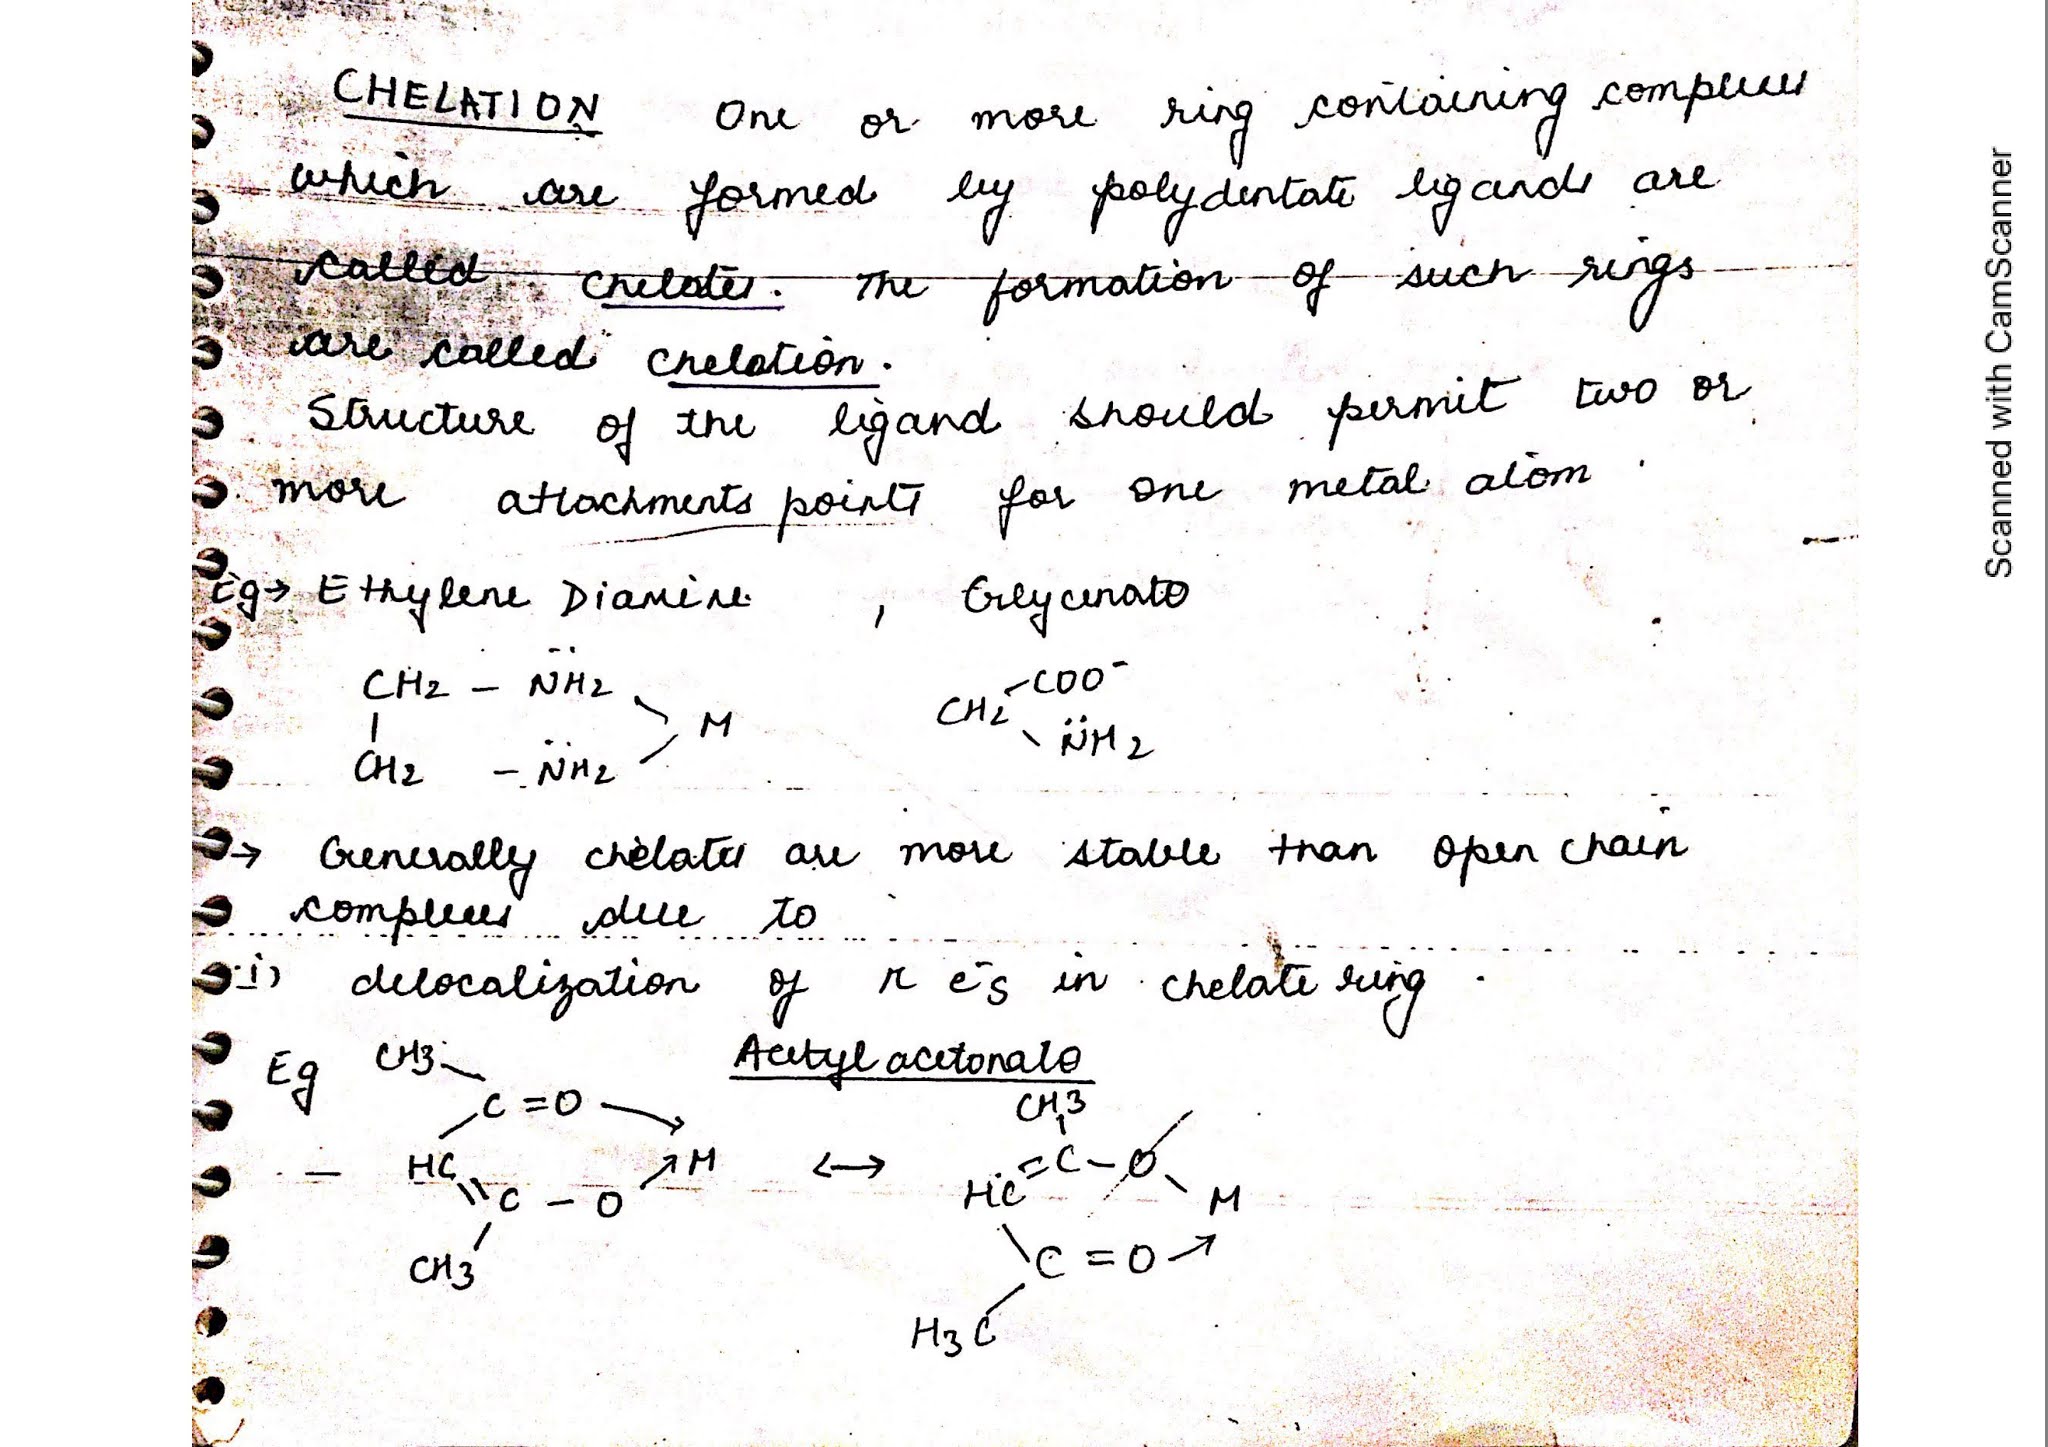 CHELATION One or more ring containing complexes
which are formed by polydentate ligands are
called chelates. The formation of such rings
are called chelation.
Structure of the ligand should permit two or
more attachments points for one metal atom.
Eg→ Ethylene Diamine , Glycinato
CH2 - N̈H2
M
CH2 - N̈H2
COO⁻
CH2
N̈H2
→ Generally chelates are more stable than open chain
complexes due to
i) delocalization of π e⁻s in chelate ring.
Eg Acetylacetonato
CH3
C=O
HC M
C-O
CH3
↔
CH3
HC=C-O
M
C=O→
H3C
Scanned with CamScanner